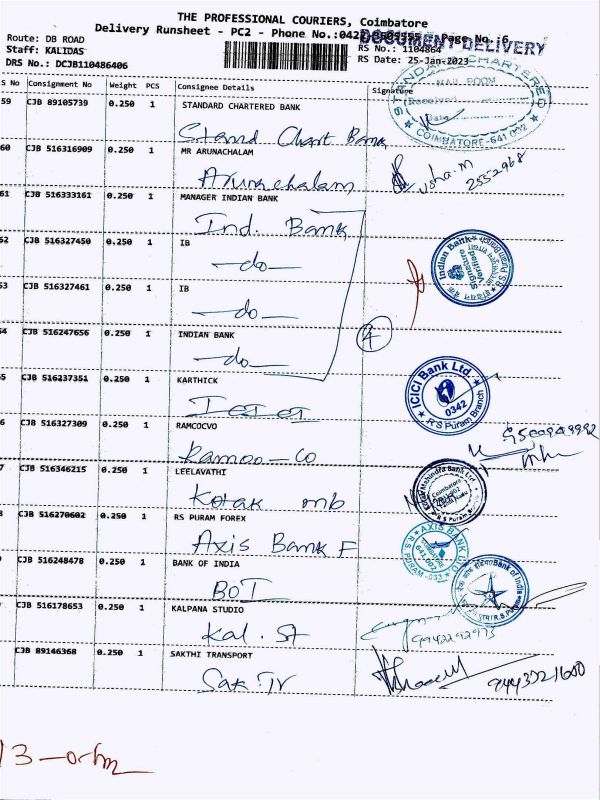 THE PROFESSIONAL COURIERS, Coimbatore
Delivery Runsheet - PC2 - Phone No.:0422 Page No.:6
DOCUMENT DELIVERY
Route: DB ROAD
Staff: KALIDAS
RS No.: 1104864
DRS No.: DCJB110486406
RS Date: 25-Jan-2023
S No Consignment No Weight PCS Consignee Details Signature
59 CJB 89105739 0.250 1 STANDARD CHARTERED BANK
Stand Chart Bank
CHARTERED
MAIL ROOM
Received
Date
COIMBATORE-641 002
60 CJB 516316909 0.250 1 MR ARUNACHALAM
Arunachalam
Usha.M
2552968
61 CJB 516333161 0.250 1 MANAGER INDIAN BANK
Ind. Bank
52 CJB 516327450 0.250 1 IB
-do-
Indian Bank
Signature
Verified
53 CJB 516327461 0.250 1 IB
-do-
54 CJB 516247656 0.250 1 INDIAN BANK
-do-
4
55 CJB 516237351 0.250 1 KARTHICK
ICICI Bank Ltd.
0342
R S Puram Branch
6 CJB 516327309 0.250 1 RAMCOCVO
Ramco-co
7 CJB 516346215 0.250 1 LEELAVATHI
Kotak mb
Kotak Mahindra Bank Ltd
Coimbatore
8 CJB 516270602 0.250 1 RS PURAM FOREX
Axis Bank F
AXIS BANK LTD
R.S. PURAM
CJB 516248478 0.250 1 BANK OF INDIA
BOI
Bank of India
CJB 516178653 0.250 1 KALPANA STUDIO
Kal. St
9942292973
CJB 89146368 0.250 1 SAKTHI TRANSPORT
Sak Tr
9443721600